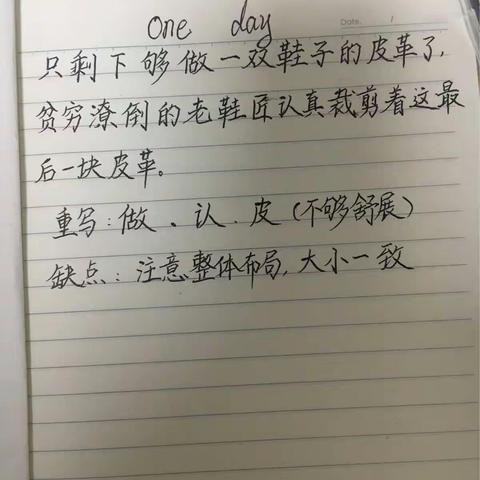 One day
Date. /
只剩下够做一双鞋子的皮革了,
贫穷潦倒的老鞋匠认真裁剪着这最
后一块皮革。
重写:做、认、皮(不够舒展)
缺点:注意整体布局,大小一致